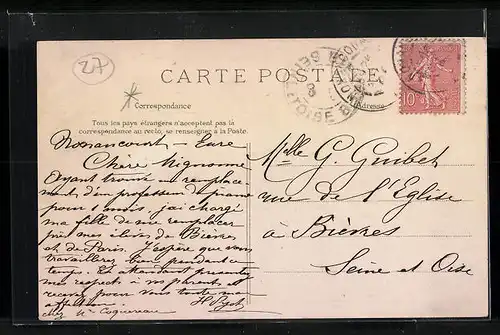 27
CARTE POSTALE
Correspondance
Adresse
Tous les pays étrangers n'acceptent pas la
correspondance au recto, se renseigner à la Poste.
10
Nonancourt - Eure
Chère Mignonne
Ayant trouvé un remplace
ment d'un professeur de piano
pour 1 mois j'ai chargé
ma fille de me remplacer
près mes élèves de Bièvres
et de Paris. J'espère que vous
travaillerez bien pendant ce
temps. En attendant présentez
mes respects à vos parents et
recevez pour vous toute mon
affection
chez Me Coquereau
Melle G. Guibet
rue de l'Eglise
à Bièvres
Seine et Oise